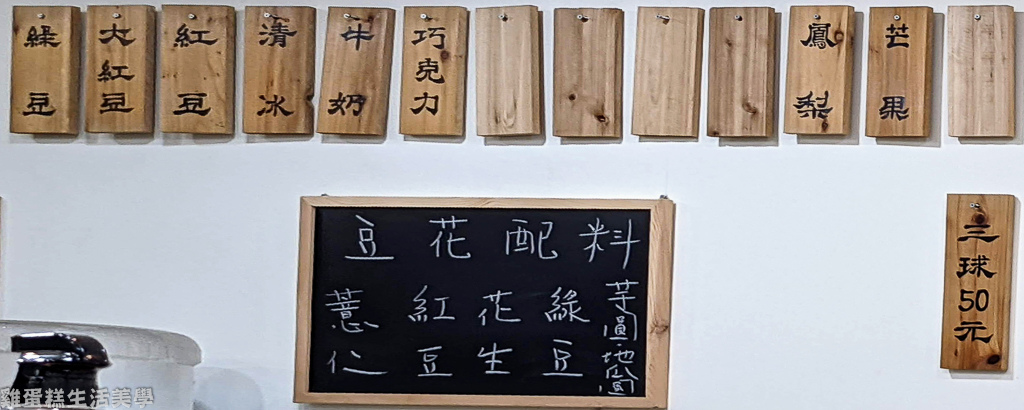 綠豆
大紅豆
紅豆
清冰
牛奶
巧克力
鳳梨
芒果
豆花配料
薏仁
紅豆
花生
綠豆
芋圓.地瓜圓
三球50元
雞蛋糕生活美學